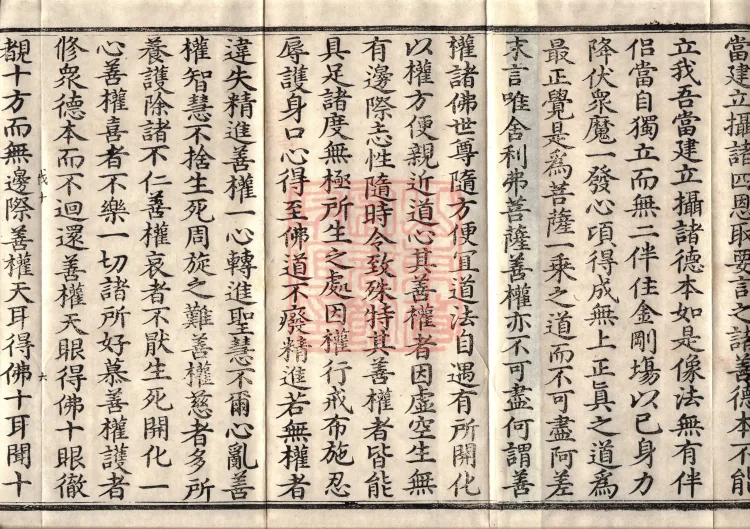 當建立攝諸四恩取要言之諸善德本不能
立我吾當建立攝諸德本如是像法無有伴
侶當自獨立而無二伴住金剛場以己身力
降伏衆魔一發心頃得成無上正真之道爲
最正覺是爲菩薩一乘之道而不可盡阿差
末言唯舍利弗菩薩善權亦不可盡何謂善
權諸佛世尊隨方便宜道法自遇有所開化
以權方便親近道心其善權者因虛空生無
有邊際志性隨時令致殊特其善權者皆能
具足諸度無極所生之處因權行戒布施忍
辱護身口心得至佛道不癈精進若無權者
違失精進善權一心轉進聖慧不爾心亂善
權智慧不捨生死周旋之難善權慈者多所
養護除諸不仁善權哀者不猒生死開化一
心善權喜者不樂一切諸所好慕善權護者
修衆德本而不迴還善權天眼得佛十眼徹
戌十 六
覩十方而無邊際善權天耳得佛十耳聞十